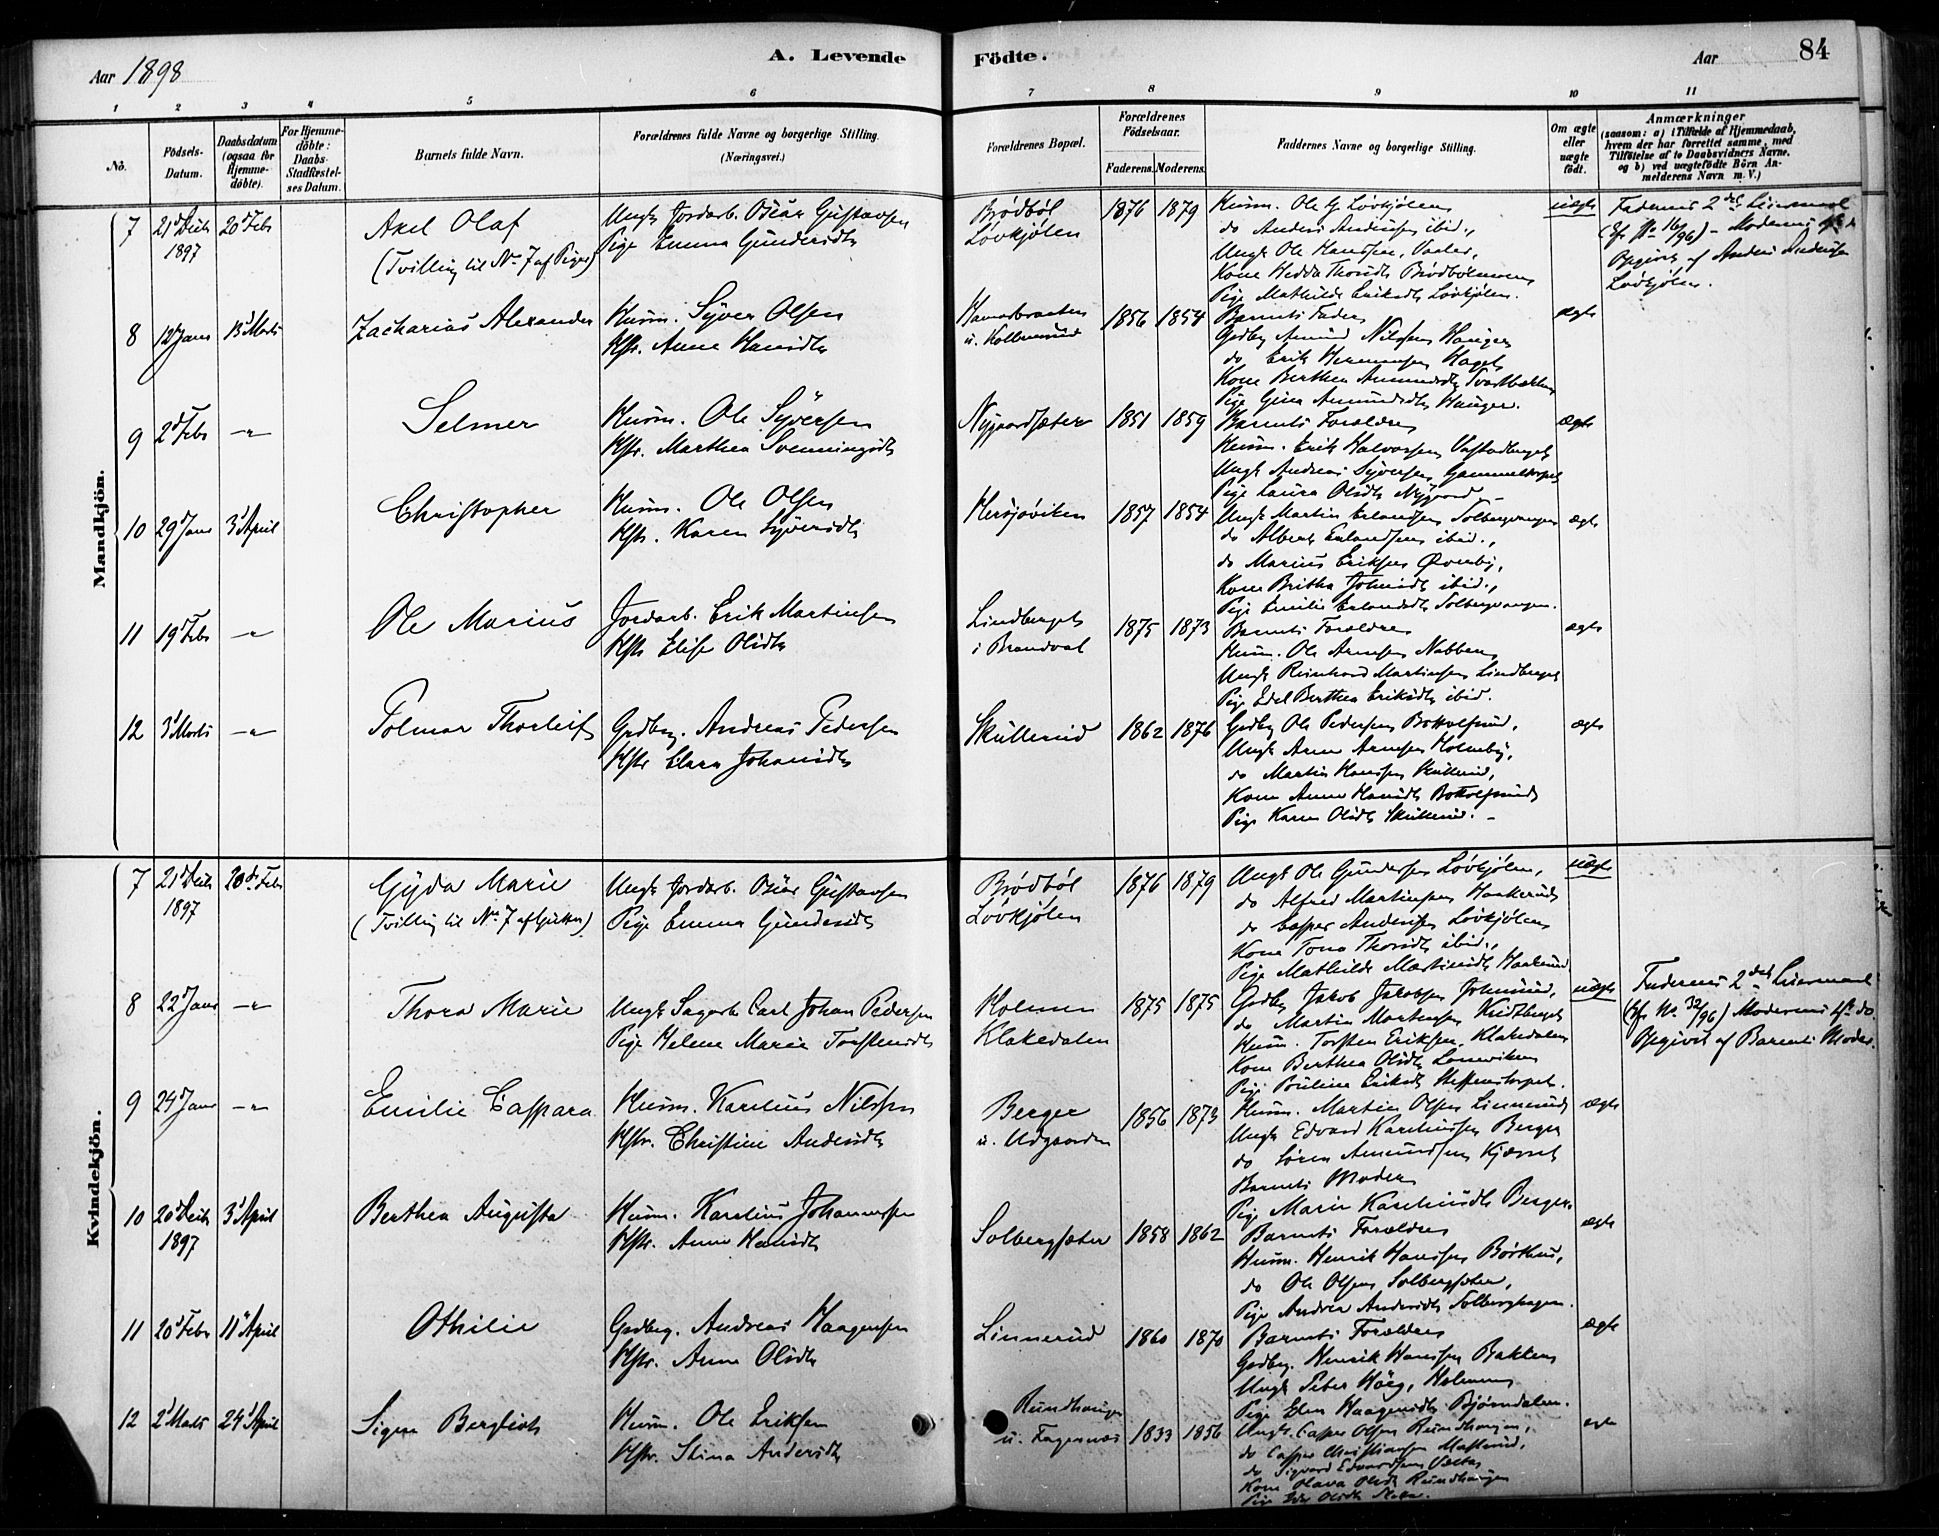 Aar 1898
A. Levende
Födte.
Aar
84
1 2 3 4 5 6 7 8 9 10 11
No.
Födsels-Datum.
Daabsdatum (ogsaa for Hjemme-döbte).
For Hjemme-döbte: Daabs-Stadfæstel-ses Datum.
Barnets fulde Navn.
Forældrenes fulde Navne og borgerlige Stilling. (Næringsvei.)
Forældrenes Bopæl.
Forældrenes Födselsaar.
Faderens. Moderens.
Faddernes Navne og borgerlige Stilling.
Om ægte eller uægte födt.
Anmærkninger
(saasom: a) i Tilfælde af Hjemmedaab, hvem der har forrettet samme, med Tilföielse af to Daabsvidners Navne, og b) ved uægtefödte Börn An-melderens Navn m. V.)
Mandkjön.
7 21d Decb 1897 20d Feb
Axel Olaf
(Tvilling til No 7 af Piger)
Ungk. Jordarb. Oscar Gustavsen
Pige Emma Gundersdtr
Brødbøl
Løvkjølen
1876 1879
Husm. Ole G. Løvhjølen
do Anders Andersen ibid.,
Ungk Ole Hanssen, Vaaler,
Kone Hedda Thorsdtr Brødbølmoen
Pige Mathilde Eriksdtr Løvkjølen.
uægte
Fadernes 2det Leiermaal
(Cfr No 16/96) – Modernes
Opgivet af Anders Andersen
Løvhjølen.
8 12d Janr 13d Marts
Zacharias Alexander
Husm. Syver Olsen
Hstr. Anne Hansdtr
u. Kolbenrud
1856 1854
Barnets Fader
Gbdbg Amund Nilssen Hauger
do Erik Hermansen Haget
Kone Berthea Amundsdtr Svartbækken
Pige Gina Amundsdtr Hauger.
ægte
9 2d Feb –"–
Selmer
Husm. Ole Syversen
Hstr. Marthea Svenningsdtr
Nygaardsæter
1851 1859
Barnets Forældre
Husm. Erik Halvorsen
Ungk Andreas Syversen Gammeltorpet
Pige Laura Olsdtr Nygaard –
ægte
10 29d Janr 3d April
Christopher
Husm. Ole Olsen
Hstr. Karen Syversdtr
Hersjøviken
1857 1854
Ungk Martin Erlandsen Solbergvangen
do Albert Erlandsen ibid.,
do Marius Eriksen Øvernby,
Kone Britha Johnsdtr ibid.,
Pige Emilie Erlandsdtr Solbergvangen.
ægte
11 19d Feb –"–
Ole Marius
Jordarb. Erik Martinsen
Hstr Elise Olsdtr
Lindberget
i Brandval
1875 1873
Barnets Forældre
Husm. Ole Arnesen Nabben
Ungk Reinhard Martinsen Lindberget
Pige Edel Berthea Eriksdtr ibid.
ægte
12 3d Marts –"–
Polmar Thorleif
Gbdbg. Andreas Pedersen
Hstr Clara Johansdtr
Skullerud
1862 1876
Gbdbg Ole Pedersen Bottolfsrud,
Ungk Arne Arnesen Holmby,
do Martin Hanssen Skullerud,
Kone Anne Hansdtr Bottolfsrud
Pige Karen Olsdtr Skullerud. –
ægte
Kvindekjön.
7 21d Decb 1897 20d Feb
Gyda Marie
(Tvilling til No 7 af Gutter)
Ungk Jordarb. Oscar Gustavsen
Pige Emma Gundersdtr
Brødbøl
Løvkjølen
1876 1879
Ungk Ole Gundersen Løvhjølen,
do Alfred Martinsen Haakerud
do Casper Andersen Løvkjølen
Kone Tona Thorsdtr ibid.,
Pige Mathilde Martinsdtr Haakerud
uægte
8 22d Janr –"–
Thora Marie
Ungk Sagarb. Carl Johan Pedersen
Pige Helene Marie Torstensdtr
Holmen
Klakedalen
1875 1875
Gbdbg Jakob Jakobsen Johnsrud,
do Martin Mortensen
Husm. Torsten Eriksen, Klakedalen
Kone Berthea Olsdtr
Pige Pauline Eriksdtr Steffenstorpet.
uægte
Fadernes 2det Leiermaal
(Cfr No 32/96) Modernes 1ste do.
Opgivet af Barnets Moder.
9 24d Janr –"–
Emilie Caspara
Husm. Karelius Nilssen
Hstr. Christine Andersdtr
Berger
u. Udgaarden
1856 1873
Husm. Martin Olsen Linnerud
Ungk Edvard Kareliussen Berger
do Søren Amundsen Kjærret
Barnets Moder
Pige Marie Kareliusdtr Berger.
ægte
10 20d Decb 1897 3d April
Berthea Augusta
Husm. Karelius Johannesen
Hstr. Anne Hansdtr
Solbergsæter
1858 1862
Barnets Forældre
Husm. Henrik Hanssen Børthus,
do Ole Olsen Solbergsæter,
Pige Andrea Andersdtr Solberghagen.
ægte
11 20d Feb 11d April
Othilie
Gbdbg. Andreas Haagensen
Hstr. Anne Olsdtr
Linnerud
1860 1870
Barnets Forældre
Gbdbg. Henrik Hanssen Bakken
Ungk Peter Høeg, Holmen
Pige Elen Haagensdtr Bjørndalen.
ægte
12 2d Marts 24d April
Signe Bergliot
Husm. Ole Eriksen
Hstr. Stina Andersdtr
Rundhaugen
u. Fagernæs
1833 1856
Ungk. Casper Olsen Rundhaugen,
do Casper Christiansen Masterud,
do Sigvard Edvardsen
Kone Olava Olsdtr Rundhaugen
Pige Olsdtr
ægte